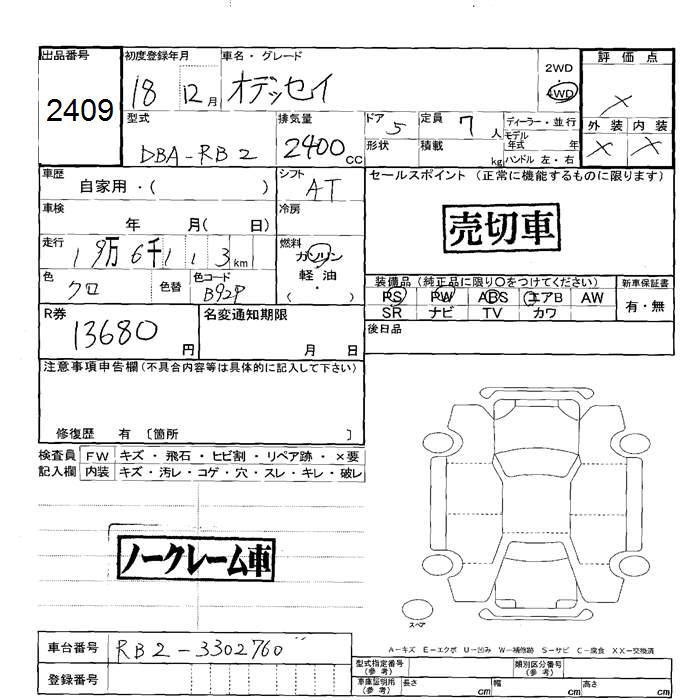 出品番号 初度登録年月 車名・グレード 評価点
2409 18 12月 オデッセイ 2WD 4WD ×
型式 排気量 ドア 5 定員 7 人 ディーラー・並行 外装 内装
DBA-RB2 2400cc 形状 積載 kg モデル年式 年 ハンドル 左・右 × ×
車歴 シフト セールスポイント (正常に機能するものに限ります)
自家用・( ) AT
車検 冷房 売切車
年 月( 日)
走行 燃料
19万6千113km ガソリン
軽油
・
( )
色 色替 色コード 装備品 (純正品に限り〇をつけてください) 新車保証書
クロ B92P PS PW ABS エアB AW 有・無
SR ナビ TV カワ
R券 名変通知期限 後日品
13680円 月 日
注意事項申告欄(不具合内容等は具体的に記入して下さい)
修復歴 有 〔箇所 〕
検査員 FW キズ・飛石・ヒビ割・リペア跡・×要
記入欄 内装 キズ・汚レ・コゲ・穴・スレ・キレ・破レ
ノークレーム車
スペア
A-キズ E-エクボ U-凹み W-補修跡 S-サビ C-腐食 XX-交換済
車台番号 RB2-3302760
型式指定番号(参考) 類別区分番号(参考)
登録番号 車庫証明用(参考) 長さ cm 幅 cm 高さ cm